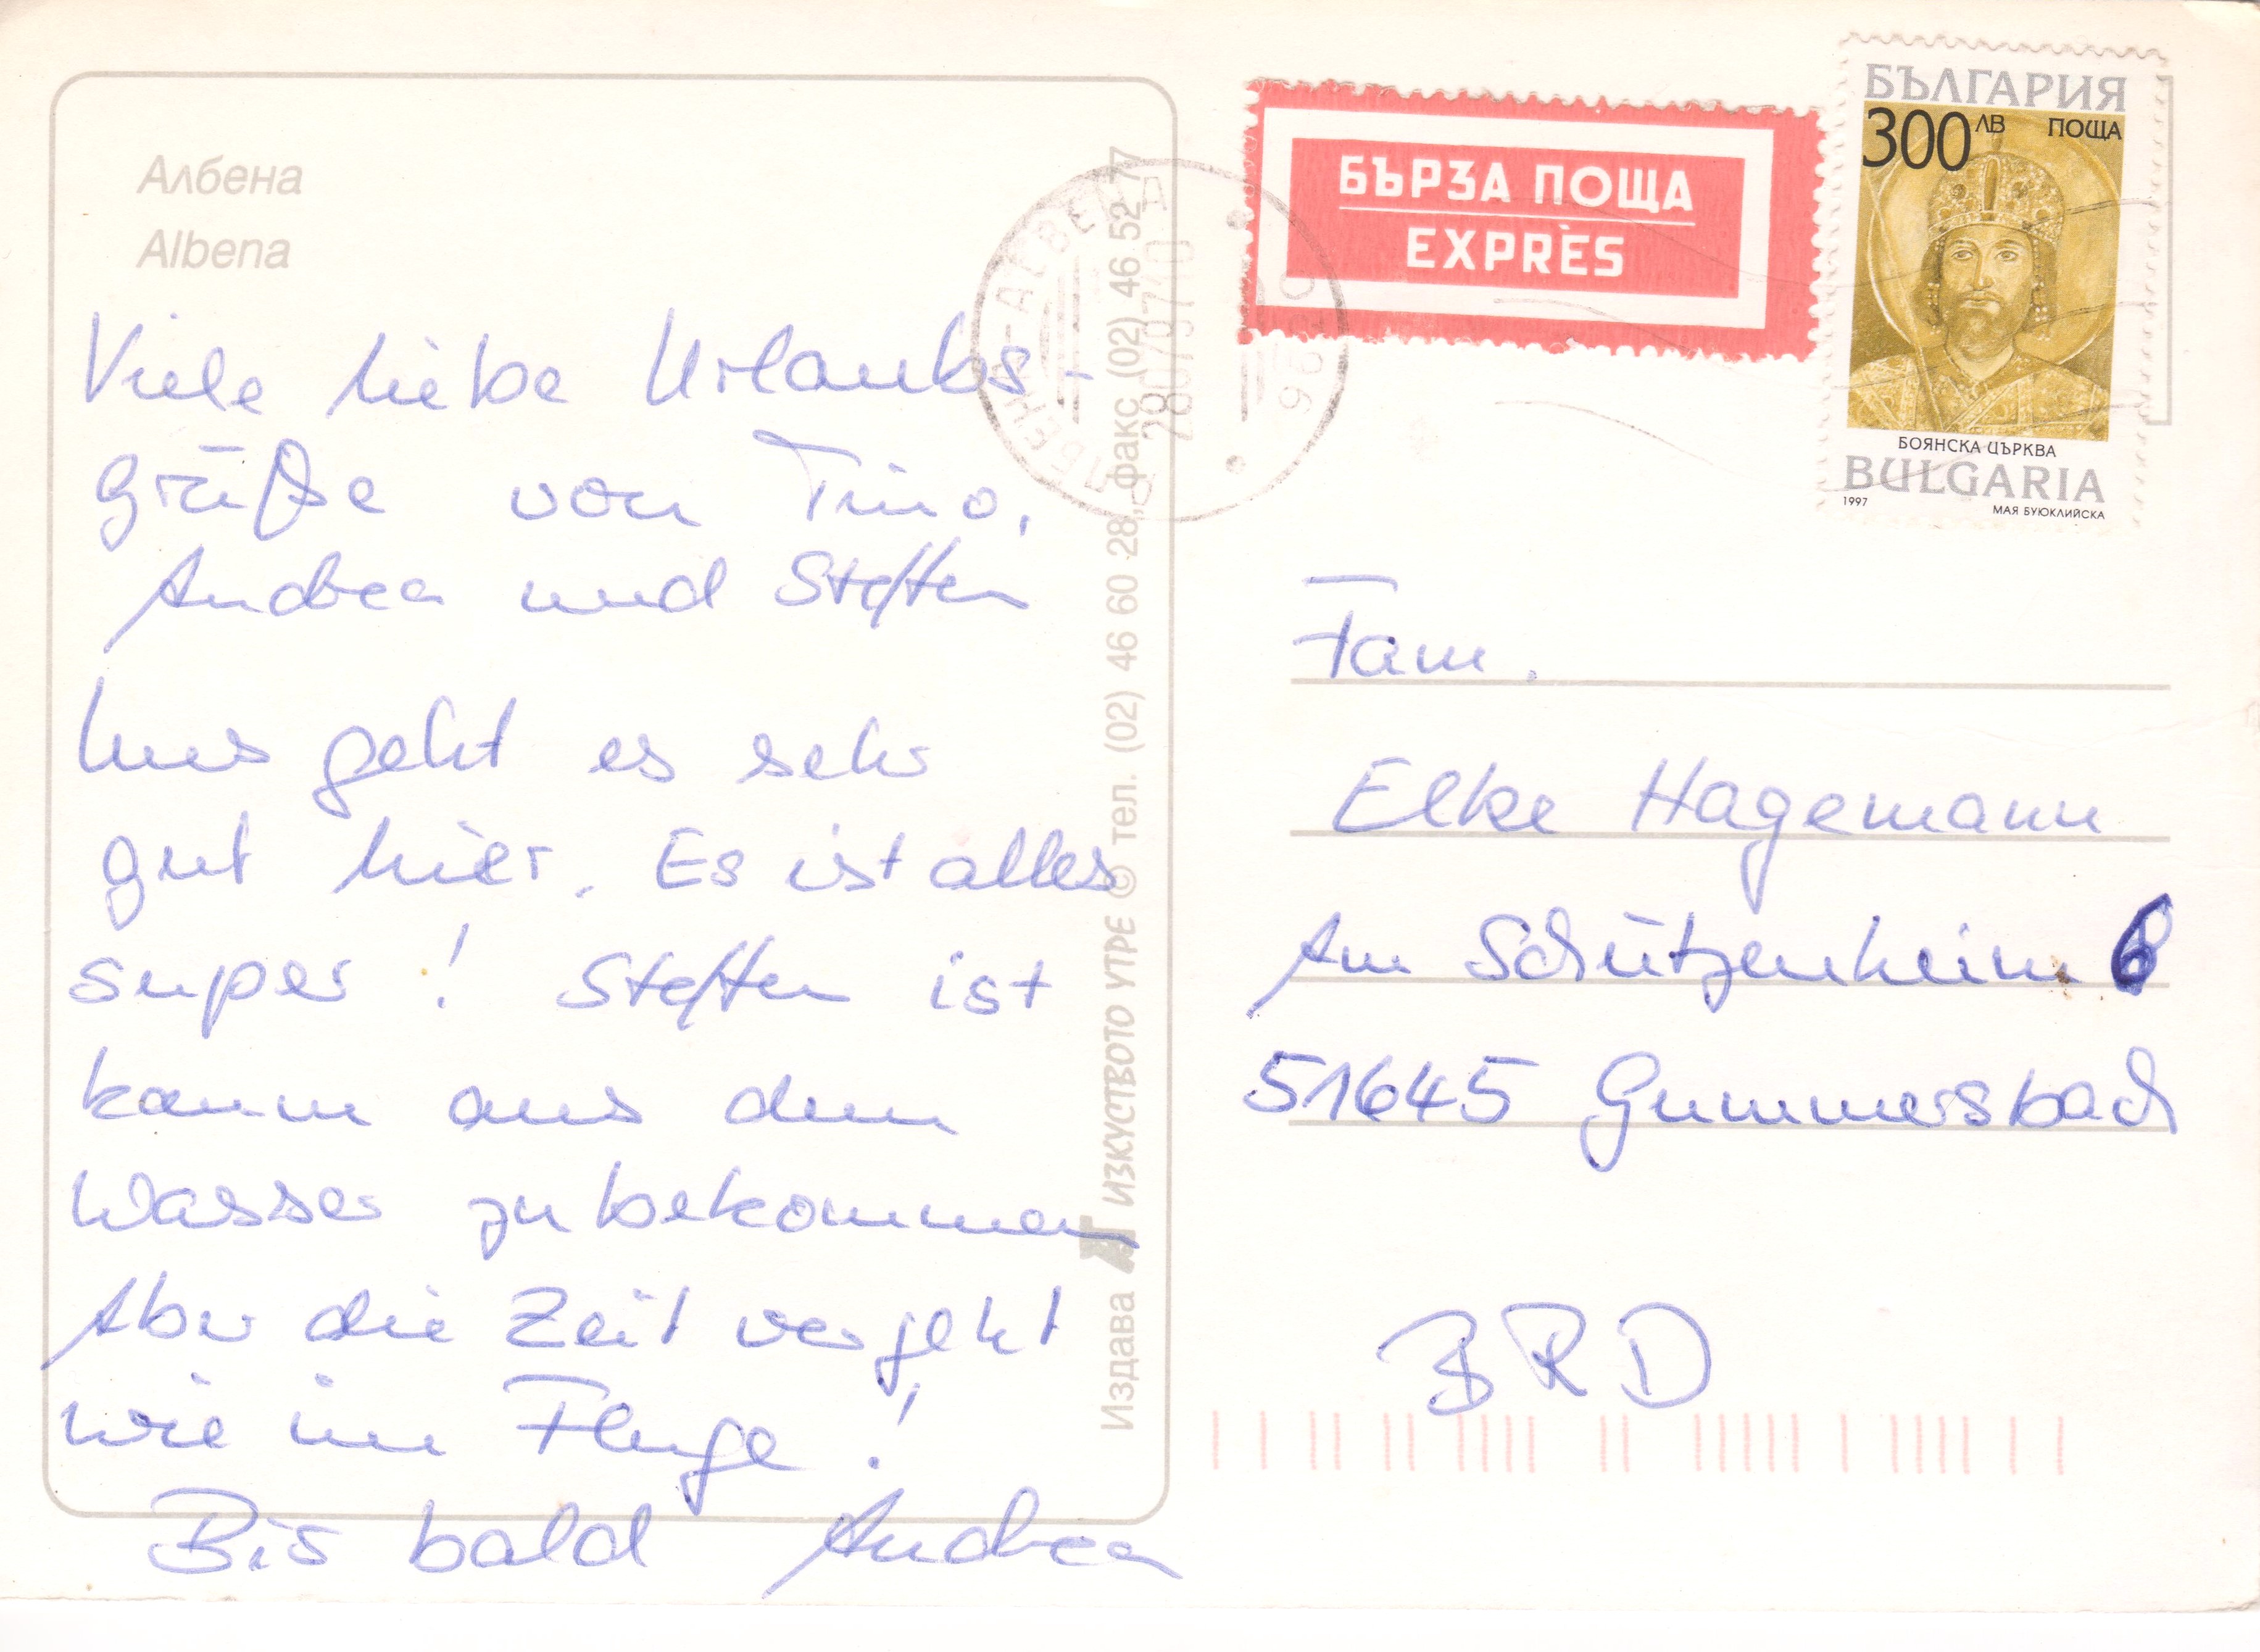 Албена
Albena
Viele liebe Urlaubs-
grüße von Tino,
Andrea und Steffen
Uns geht es sehr
gut hier. Es ist alles
super! Steffen ist
kaum aus dem
Wasser zu bekommen
Aber die Zeit vergeht
wie im Fluge!
Bis bald Andrea
Издава ИЗКУСТВОТО УТРЕ © тел. (02) 46 60 28, факс (02) 46 52 77
28079710
9620
БЪРЗА ПОЩА
EXPRÈS
БЪЛГАРИЯ
300 ЛВ ПОЩА
БОЯНСКА ЦЪРКВА
BULGARIA
1997 МАЯ БУЮКЛИЙСКА
Fam.
Elke Hagemann
Am Schützenheim 6
51645 Gummersbach
BRD